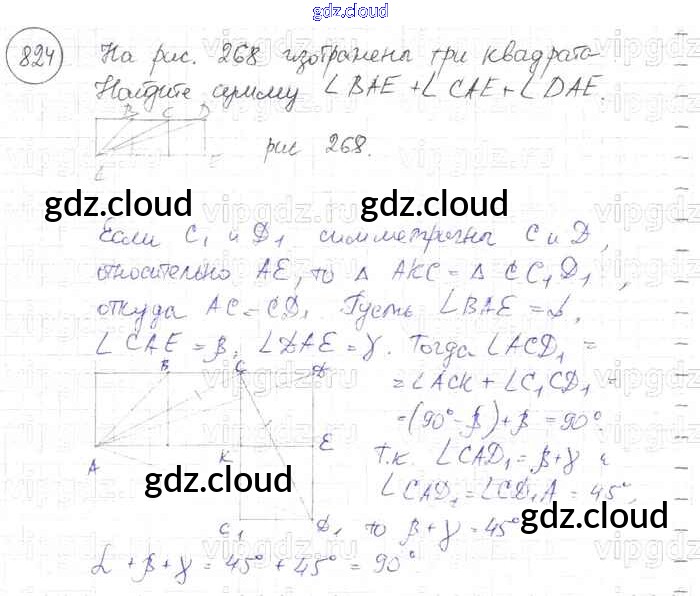 gdz.cloud
824 На рис. 268 изображены три квадрата
Найдите сумму ∠BAE + ∠CAE + ∠DAE.
B C D
A E
рис 268.
gdz.cloud gdz.cloud
Если C₁ и D₁ симметричны C и D,
относительно AE, то Δ AKC = Δ CC₁D₁,
откуда AC = CD₁. Пусть ∠BAE = α,
∠CAE = β, ∠DAE = γ. Тогда ∠ACD₁ =
= ∠ACK + ∠C₁CD₁ =
= (90° - β) + β = 90°.
Т.к. ∠CAD₁ = β + γ и
∠CAD₁ = ∠CD₁A = 45°,
то β + γ = 45°
B C D
A K E
C₁ D₁
gdz.cloud
gdz.cloud
α + β + γ = 45° + 45° = 90°